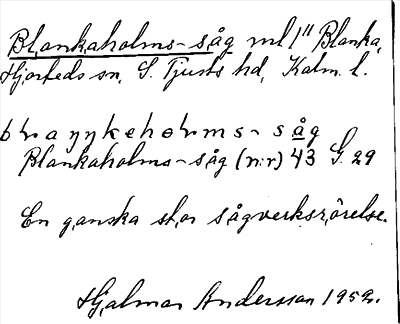 Blankaholms-såg ml 1" Blanka,
Hjorteds sn, S. Tjusts hd, Kalm. l.
Blankaholms-såg (nr) 43 G. 29
En ganska stor sågverksrörelse.
Hjalmar Andersson 1952.